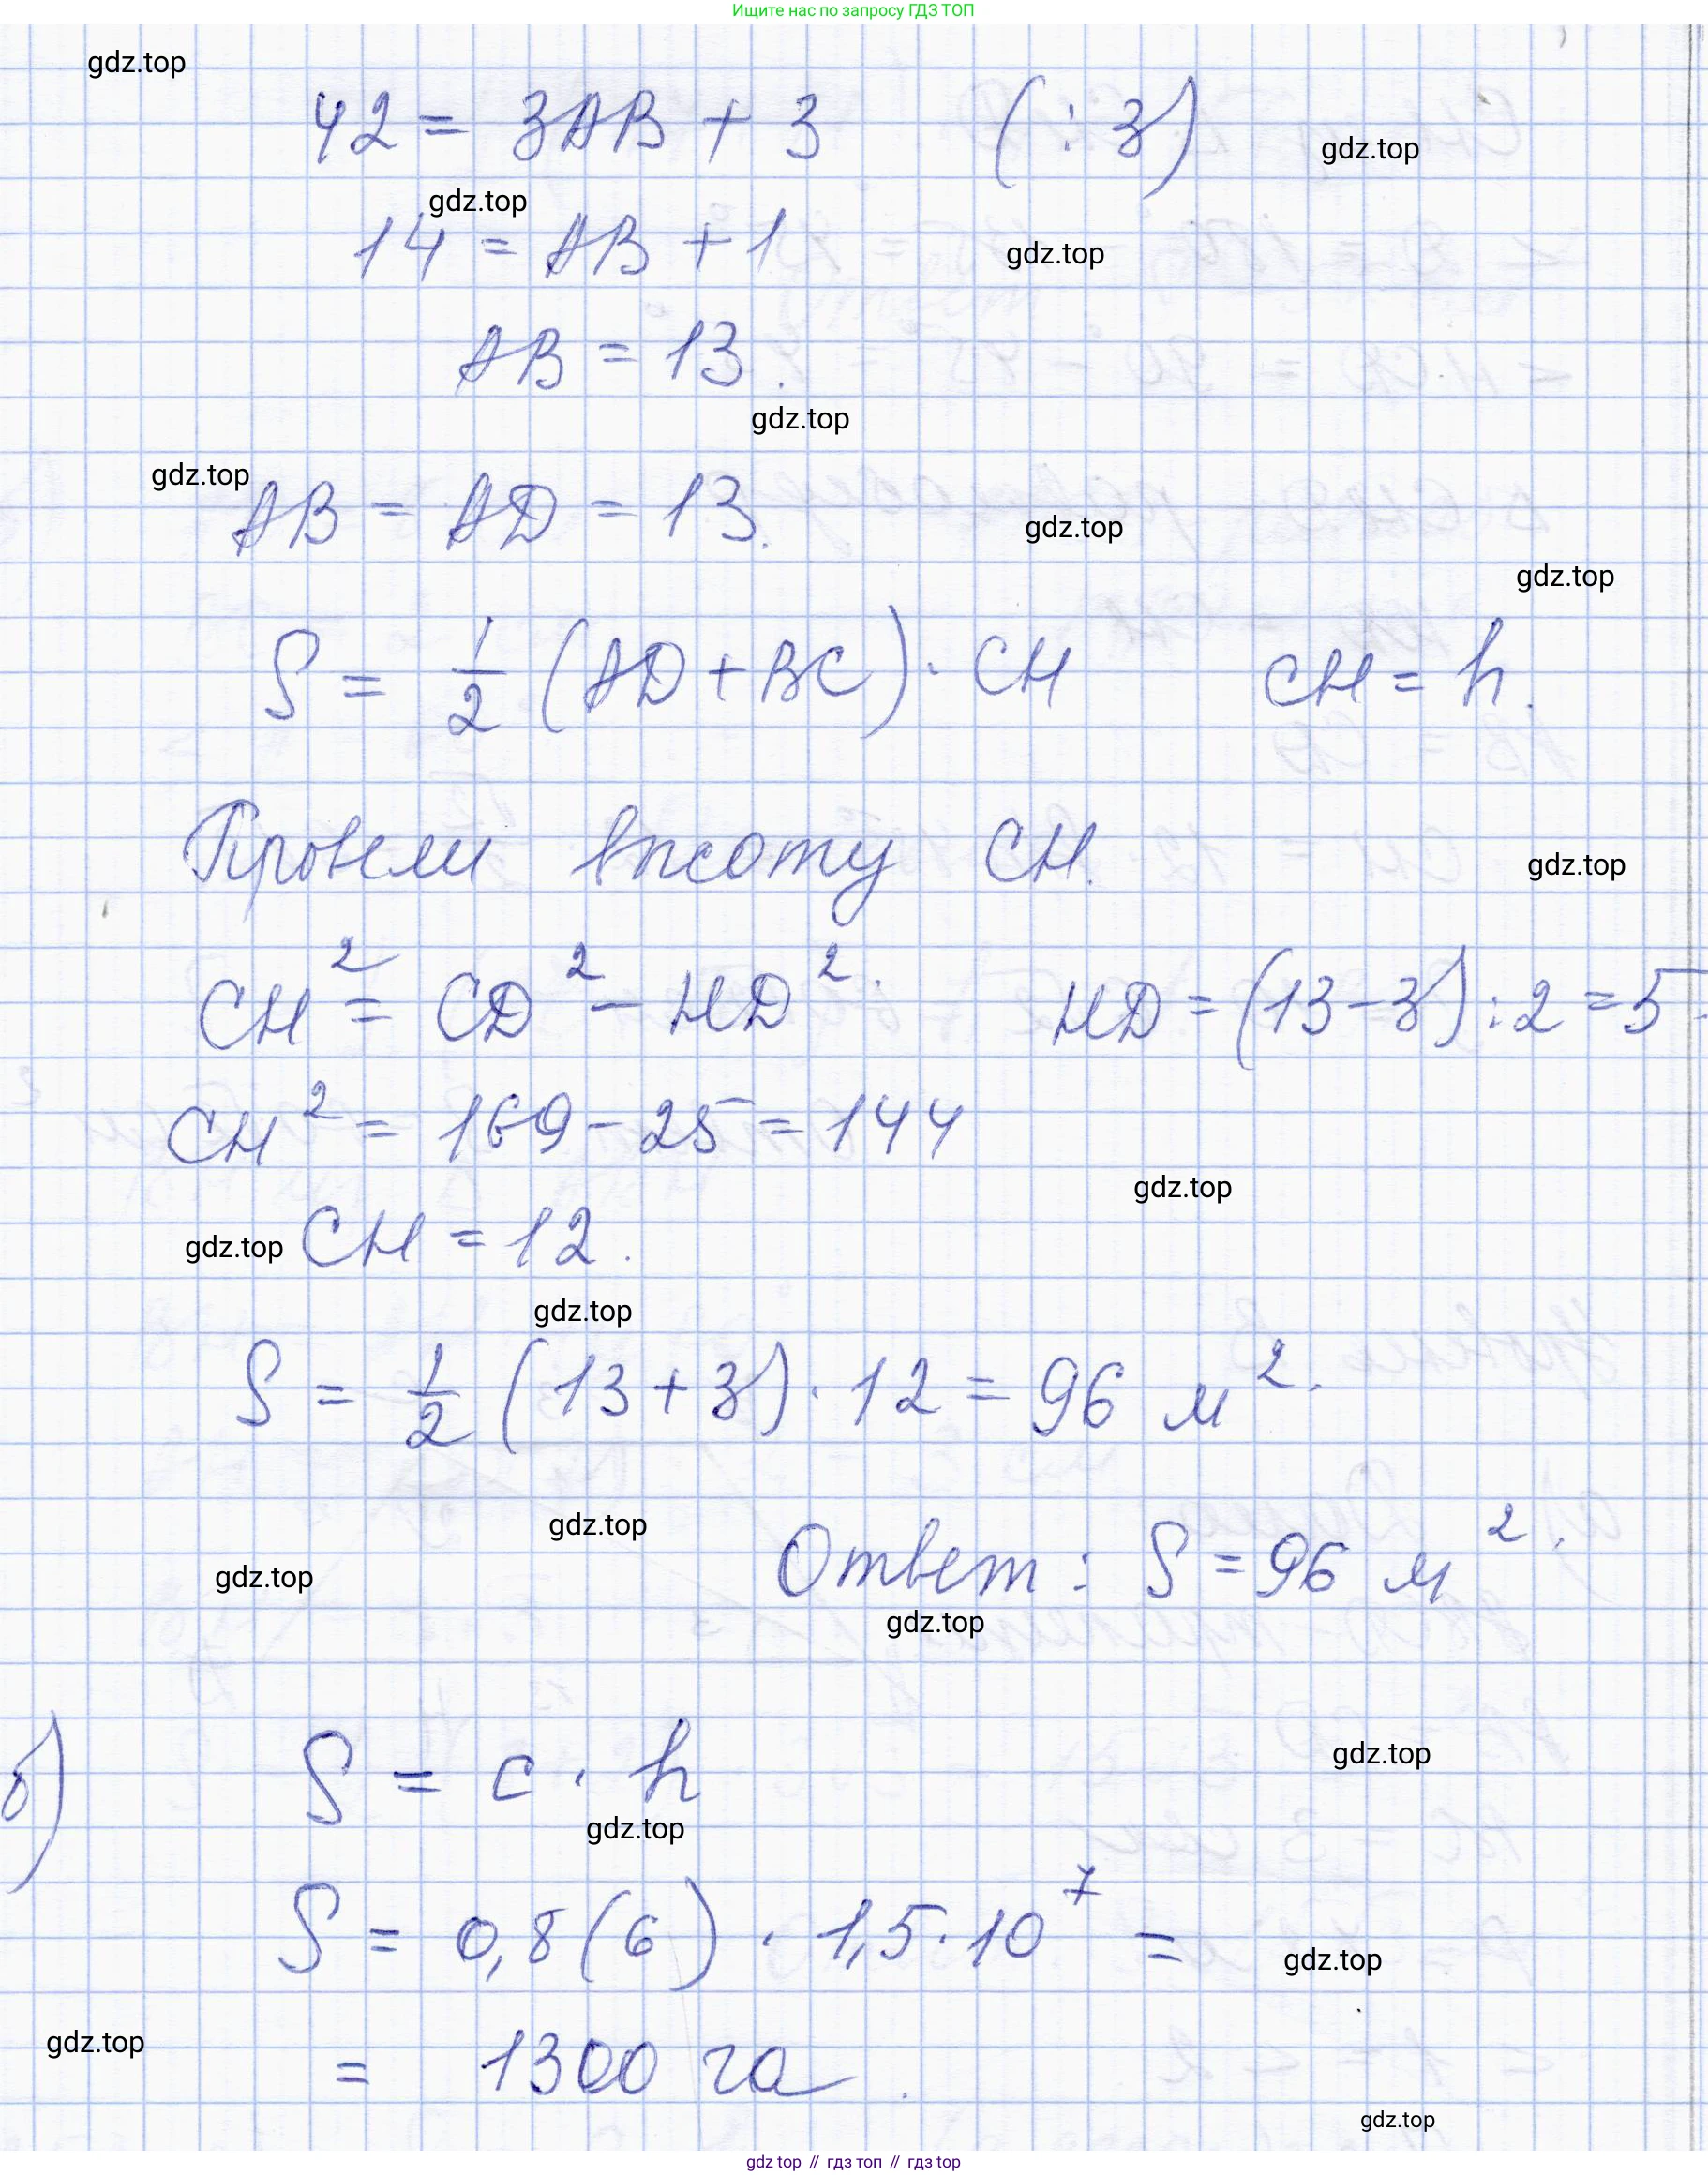 Ищите нас по запросу ГДЗ ТОП
gdz.top
42 = 3AB + 3 (:3)
gdz.top
gdz.top
14 = AB + 1
gdz.top
AB = 13.
gdz.top
gdz.top
AB = AD = 13.
gdz.top
gdz.top
S = 1/2 (AD + BC) · CH CH = h.
Провели высоту CH.
gdz.top
CH² = CD² - HD². HD = (13-3):2 = 5.
CH² = 169 - 25 = 144
gdz.top
gdz.top CH = 12.
gdz.top
S = 1/2 (13 + 3) · 12 = 96 м².
gdz.top
Ответ: S = 96 м².
gdz.top
gdz.top
б) S = c · h
gdz.top
gdz.top
S = 0,8(6) · 1,5 · 10⁷ =
gdz.top
gdz.top
= 1300 га.
gdz.top
gdz top // гдз топ // гдз top